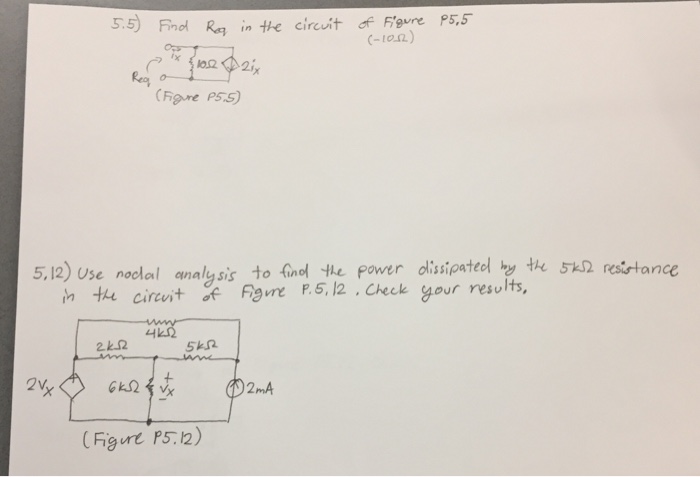 5.5) Find Req in the circuit of Figure P5,5
(-10Ω)
ix
10Ω
2ix
Req
(Figure P5.5)
5.12) Use nodal analysis to find the power dissipated by the 5kΩ resistance
in the circuit of Figure P.5.12. Check your results.
4kΩ
2kΩ
5kΩ
2Vx
6kΩ
+
Vx
-
2mA
(Figure P5.12)